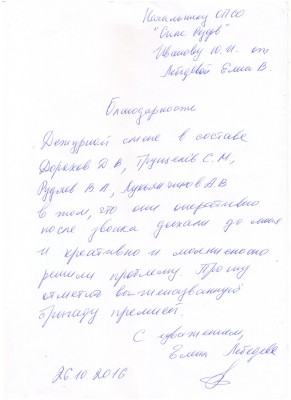 Начальнику ОПСО
"Сила Рудов"
Иванову Ю.И. от
Лебедевой Елны В.
Благодарность
Дежурной смене в составе
Дорохов Д.В, С.М,
Рудаев В.А, А.В
в том, что они оперативно
после звонка доехали до меня
и креативно и молниеносно
решили проблему. Прошу
отметить вышеназванную
бригаду премией.
С уважением,
Елена Лебедева
26.10.2016